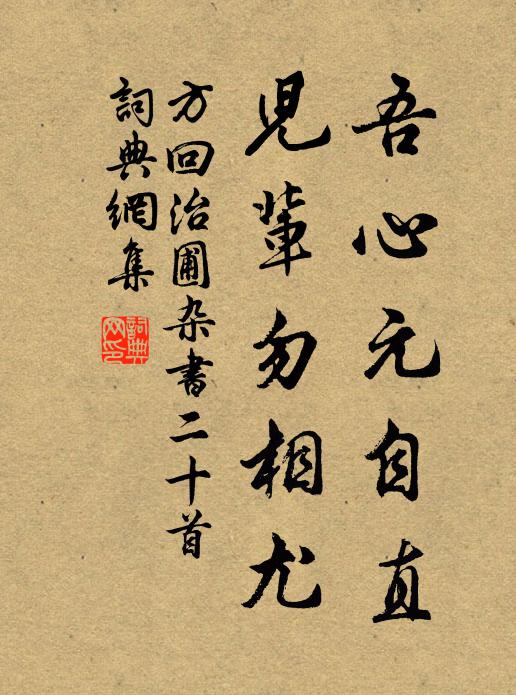 吾心元自直
兒輩勿相尤
方回治圃杂書二十首
詞典網集
詞典網印